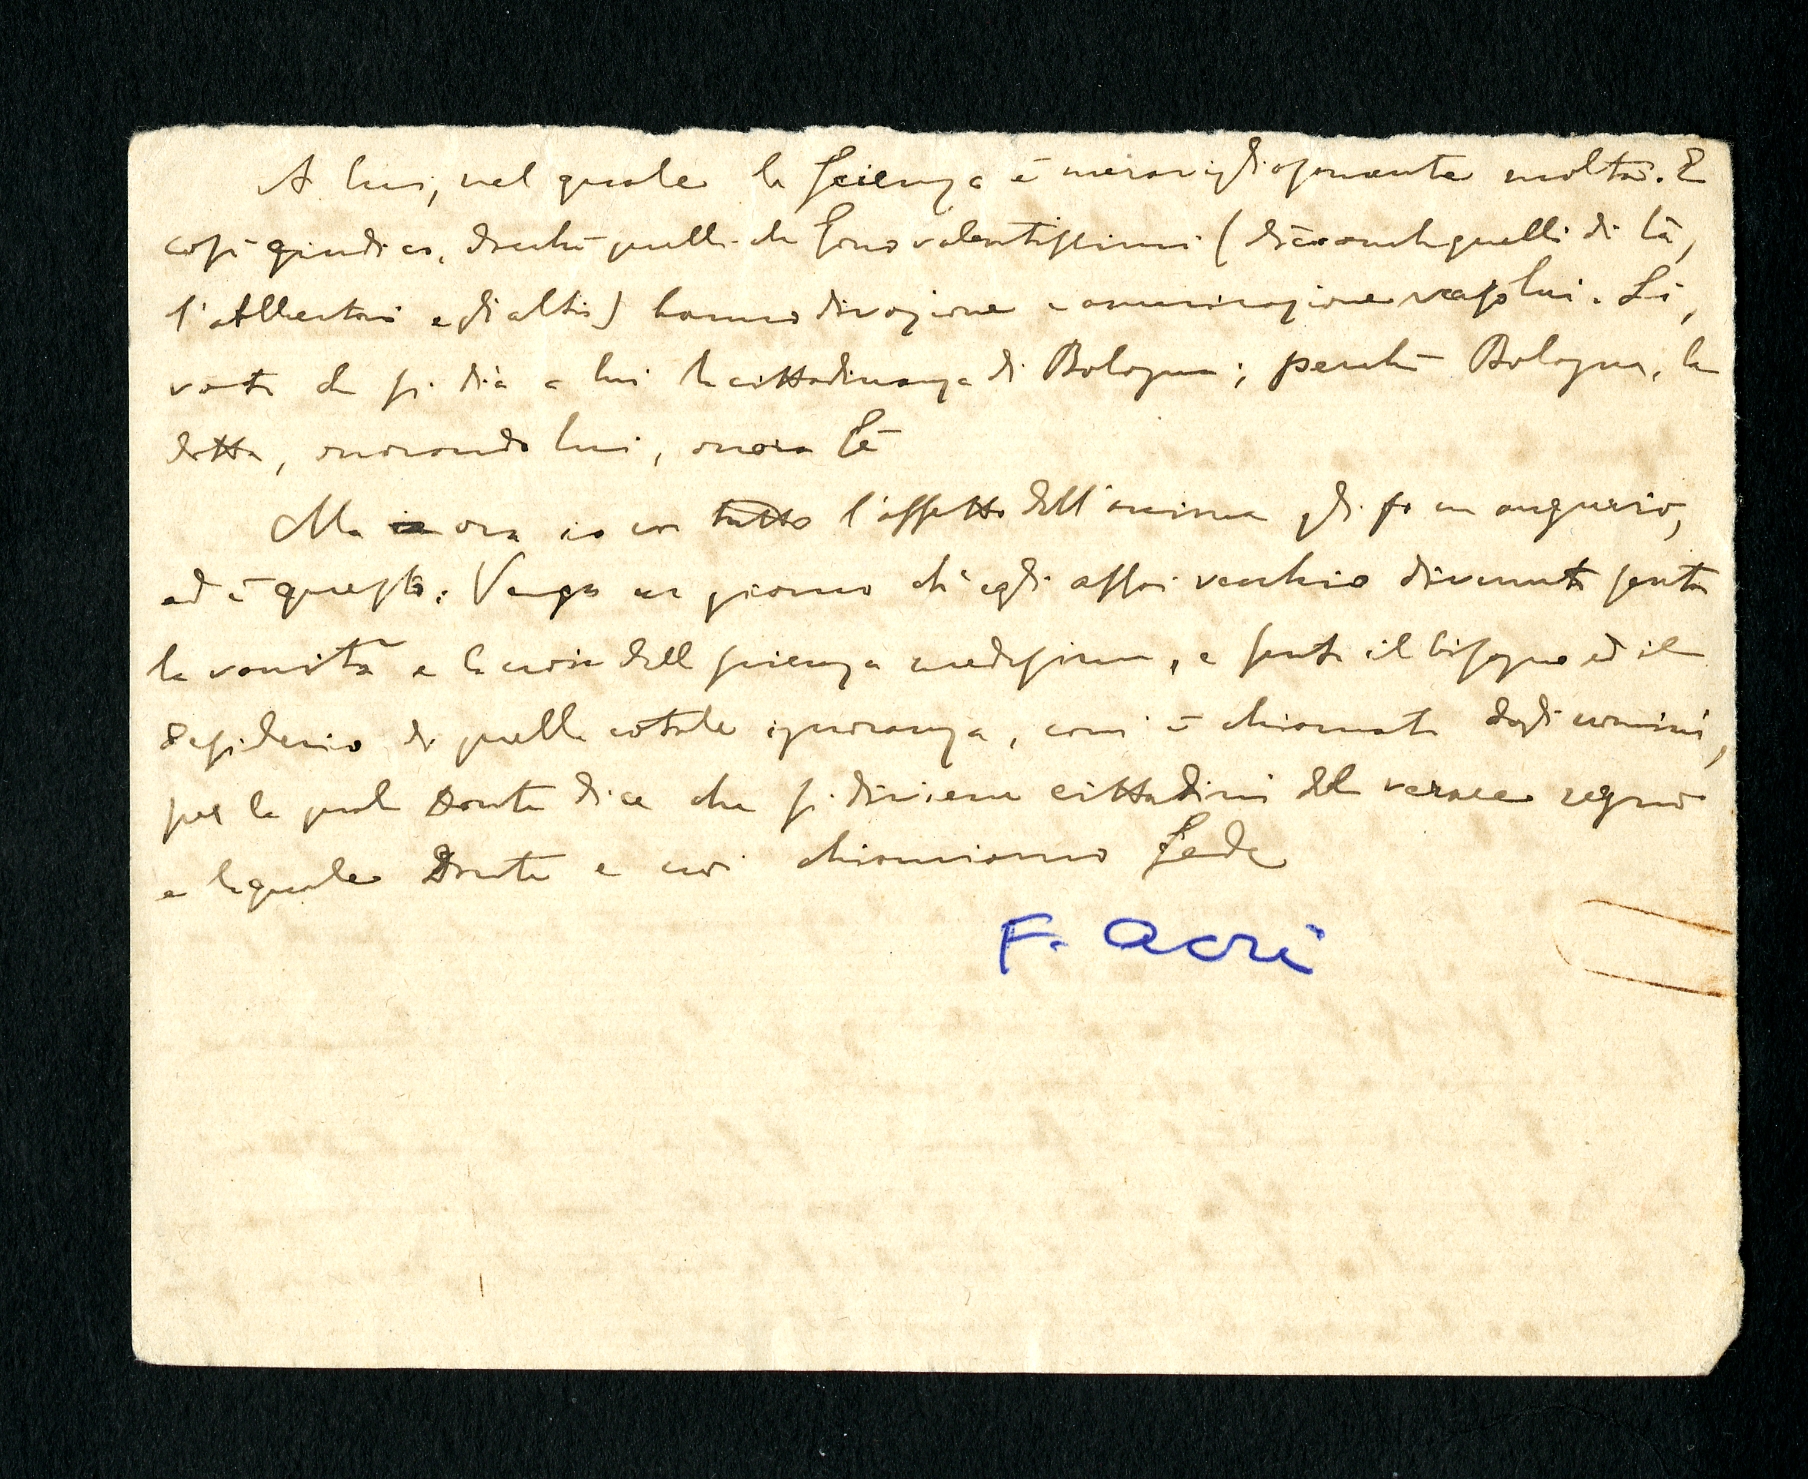 A lui, nel quale la scienza è meravigliosamente molta. E
così giudico, perché quelli che sono valentissimi (dico anche quelli di là,
l'Albertoni e gli altri) hanno divozione e ammirazione verso lui. Sì,
voto che si dia a lui la cittadinanza di Bologna; perché Bologna, la
dotta, onorando lui, onora sé
Ma ora io con tutto l'affetto dell'anima gli fo un augurio,
ed è questo: Venga un giorno ch'egli assai vecchio divenuto senta
la vanità e la noia della scienza medesima, e senta il bisogno ed il
desiderio di quella cotale ignoranza, com'è chiamata dagli uomini,
per la quale Dante dice che si diviene cittadini del verace regno
e la quale Dante e noi chiamiamo Fede
F. Acri